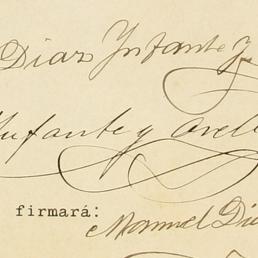 Diaz Ynfante y
Ynfante y Avel
firmará:
Manuel Di